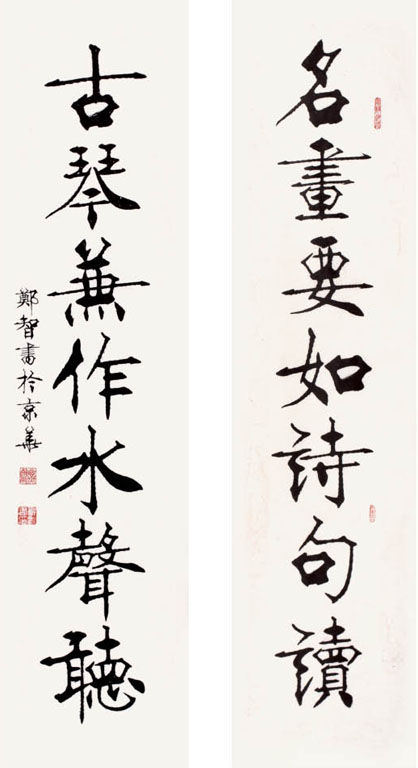 名畫要如詩句讀
古琴蒹作水聲聽
鄭智書於京華